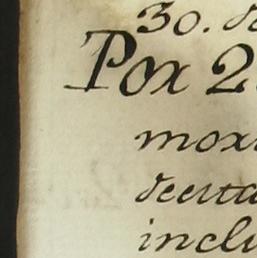 30. de
Por 2
mor
decta
inclu